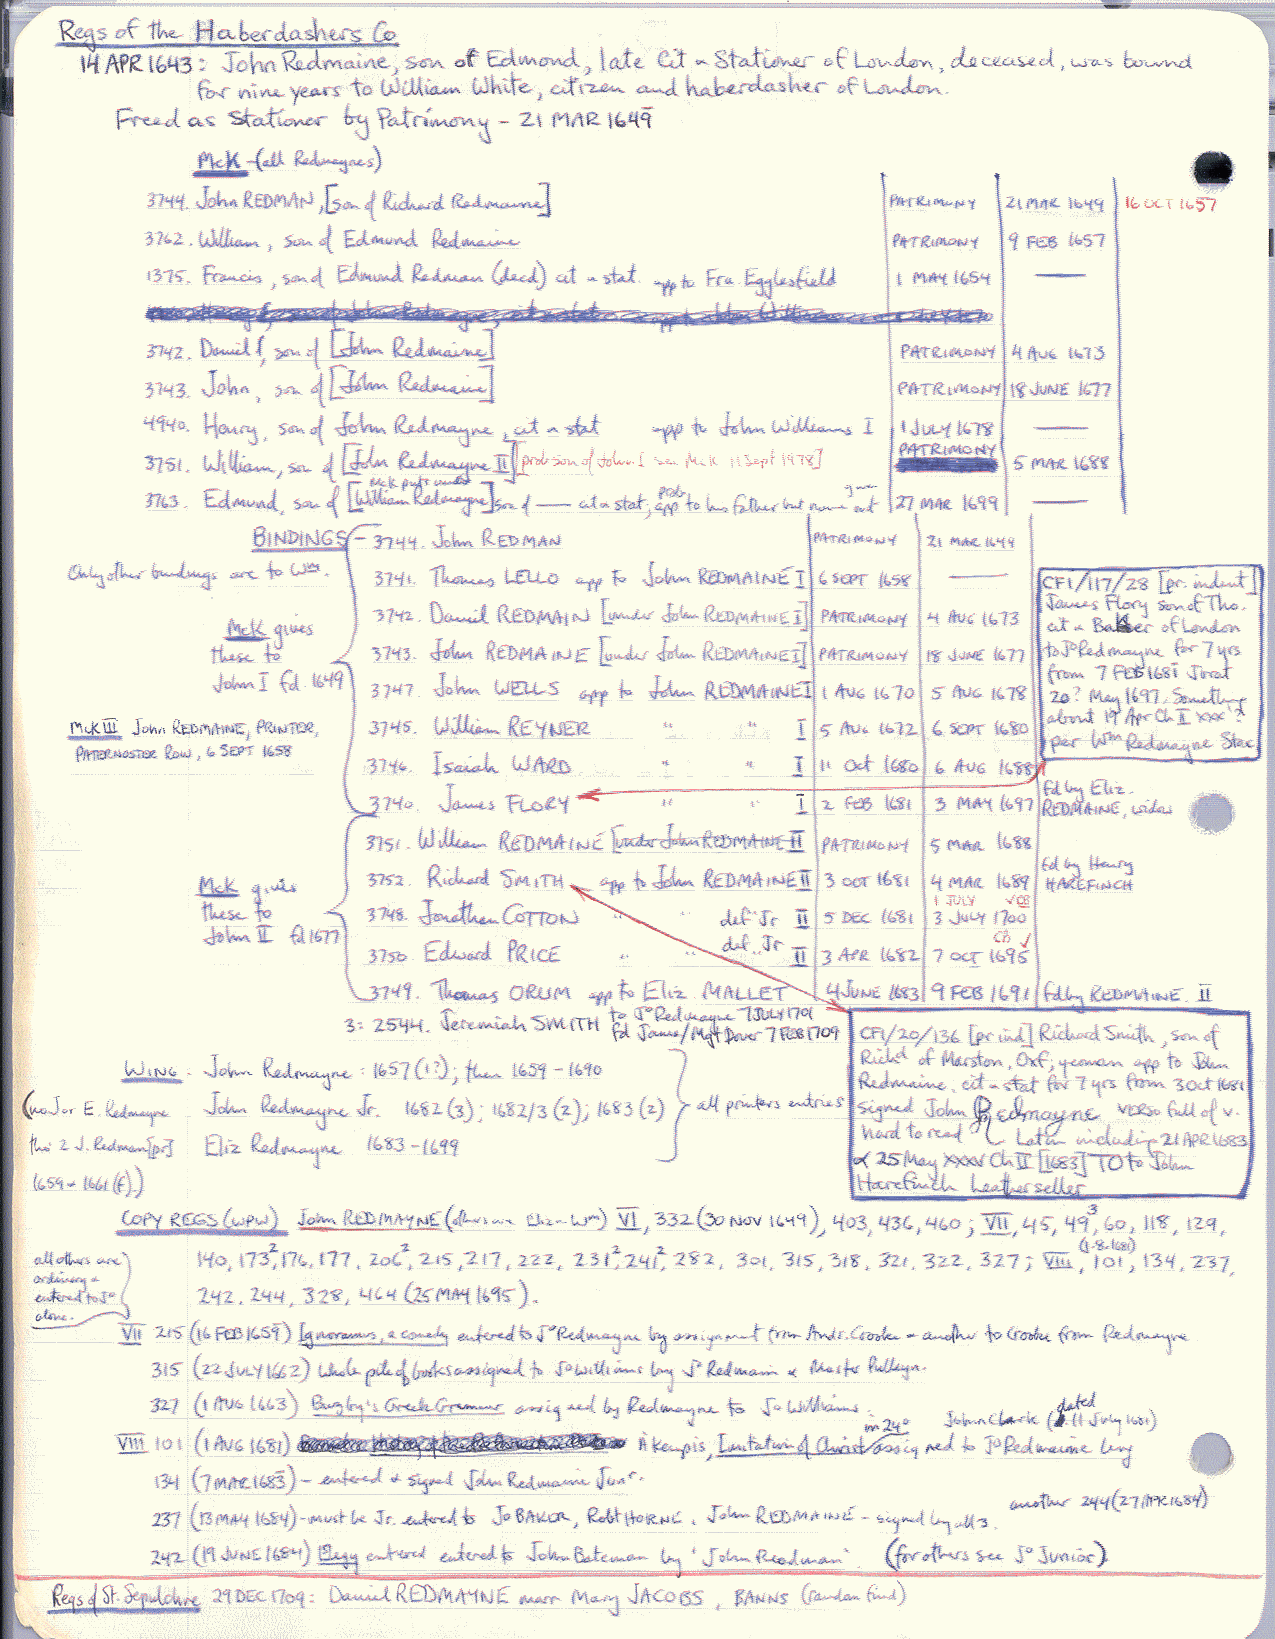 Regs of the Haberdashers Co
14 APR 1643: John Redmaine, son of Edmond, late Cit & Stationer of London, deceased, was bound
for nine years to William White, citizen and haberdasher of London.
Freed as Stationer by Patrimony - 21 MAR 1649
McK - (all Redmaynes)
3744. John REDMAN, [son of Richard Redmaine] PATRIMONY 21 MAR 1649 16 OCT 1657
3762. William, son of Edmund Redmaine PATRIMONY 9 FEB 1657
1375. Francis, son of Edmund Redman (decd) cit & stat. app to Fra. Egglesfield 1 MAY 1654 —
3742. Daniel, son of [John Redmaine] PATRIMONY 4 AUG 1673
3743. John, son of [John Redmaine] PATRIMONY 18 JUNE 1677
4940. Henry, son of John Redmayne, cit & stat app to John Williams I 1 JULY 1678 —
3751. William, son of [John Redmayne II] [prob son of John I see McK 11 Sept 1978] PATRIMONY 5 MAR 1688
McK puts under
3763. Edmund, son of [William Redmayne] son of — cit & stat; prob app to his father but name not given 27 MAR 1699 —
BINDINGS - 3744. John REDMAN PATRIMONY 21 MAR 1649
Only other bindings are to Wm. 3741. Thomas LELLO app to John REDMAINE I 6 SEPT 1658 —
3742. Daniel REDMAIN [under John REDMAINE I] PATRIMONY 4 AUG 1673
McK gives
these to
John I fd. 1649
3743. John REDMAINE [under John REDMAINE I] PATRIMONY 18 JUNE 1677
3747. John WELLS app to John REDMAINE I 1 AUG 1670 5 AUG 1678
McK III John REDMAINE, PRINTER,
PATERNOSTER ROW, 6 SEPT 1658
3745. William REYNER " " I 5 AUG 1672 6 SEPT 1680
3746. Isaiah WARD " " I 11 Oct 1680 6 AUG 1688
3740. James FLORY " " I 2 FEB 1681 3 MAY 1697 fd by Eliz. REDMAINE, widow
CF1/117/28 [pr. indent]
James Flory son of Tho.
cit & Baker of London
to Jo Redmayne for 7 yrs
from 7 FEB 1681
20? May 1697. Something
about 19 Apr Ch II xxx?
per Wm Redmayne Stac
3751. William REDMAINE [under John REDMAINE II PATRIMONY 5 MAR 1688
3752. Richard SMITH app to John REDMAINE II 3 OCT 1681 4 MAR 1689 fd by Henry HAREFINCH
McK gives
these to
John II fd 1677
1 JULY √CB
3748. Jonathan COTTON " " def. Jr II 5 DEC 1681 3 JULY 1700
CB √
3750 Edward PRICE " " def. Jr II 3 APR 1682 7 OCT 1695
3749. Thomas ORUM app to Eliz. MALLET 4 JUNE 1683 9 FEB 1691 fd by REDMAINE. II
3: 2544. Jeremiah SMITH to Jo Redmayne 7 JULY 1701
fd James/Mgt Dover 7 FEB 1709
CF1/20/136 [pr ind] Richard Smith, son of
Richd of Marston, Oxf; yeoman app to John
Redmaine. cit & stat for 7 yrs from 3 Oct 1681
signed John Redmayne VERSO full of v.
hard to read Latin including 21 APR 1683
& 25 May xxxv Ch II [1683] TO to John
Harefinch Leatherseller
WING - John Redmayne: 1657 (1?); then 1659 - 1690
(no J or E. Redmayne John Redmayne Jr. 1682 (3); 1682/3 (2); 1683 (2) all printers entries
tho' 2 J. Redman [pr] Eliz Redmayne 1683 - 1699
1659 & 1661 (f).)
COPY REGS (WPW) John REDMAYNE (others are Eliz & Wm) VI, 332 (30 NOV 1649), 403, 436, 460; VII, 45, 49³, 60, 118, 129,
140, 173², 176, 177, 206², 215, 217, 222, 231², 241², 282, 301, 315, 318, 321, 322, 327; VIII, 101 (1-8-1681), 134, 237,
242, 244, 328, 464 (25 MAY 1695).
all others are
ordinary &
entered to Jo
alone.
VII 215 (16 FEB 1659) Ignoramus, a comedy entered to Jo Redmayne by assignment from Andr. Crooke & another to Crooke from Redmayne
315 (22 JULY 1662) Whole pile of books assigned to Jo Williams by Jo Redmain & Master Pulleyn.
327 (1 AUG 1663) Buzby's Greek Grammar assigned by Redmayne to Jo Williams.
VIII 101 (1 AUG 1681) A Kempis, Imitation of Christ in 24° assigned to Jo Redmaine by John Clark (dated 11 July 1681)
134 (7 MAR 1683) - entered & signed John Redmaine Junr.
237 (13 MAY 1684) - must be Jr. entered to Jo BAKER, Robt HORNE, John REDMAINE - signed by all 3. another 244 (27 APR 1684)
242 (19 JUNE 1684) Elegy entered entered to John Bateman by 'John Readman'. (for others see Jo Junior)
Regs of St. Sepulchre 29 DEC 1709: Daniel REDMAYNE marr Mary JACOBS, BANNS (random find)